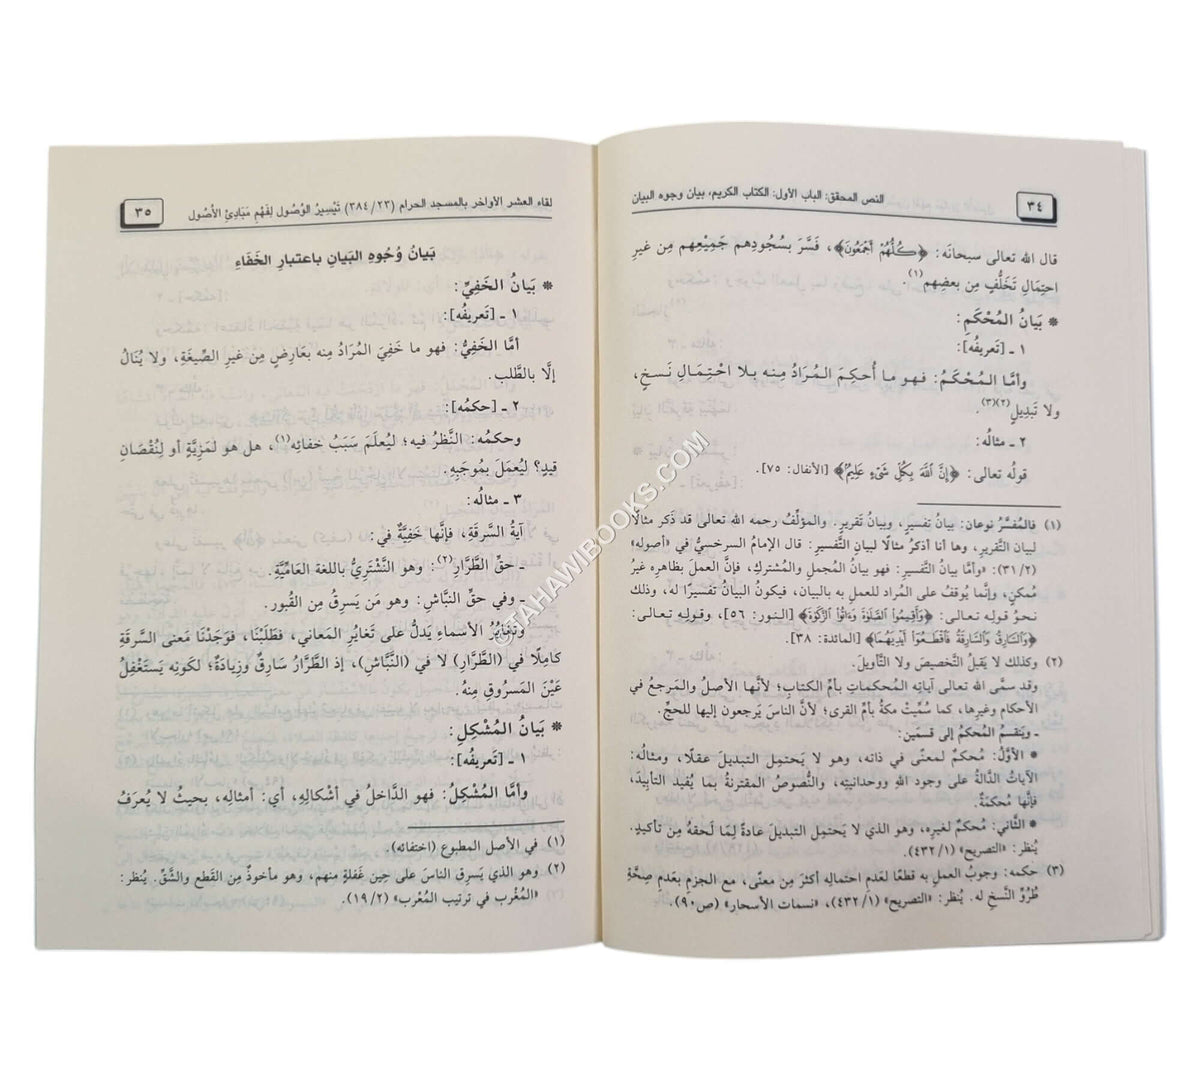 ٣٤
النص المحقق: الباب الأول: الكتاب الكريم، بيان وجوه البيان
قال الله تعالى سبحانَه: ﴿كُلُّهُمْ أَجْمَعُونَ﴾، فَسَّرَ بسُجُودِهم جَمِيْعِهم مِن غيرِ
احتِمالِ تَخَلُّفٍ مِن بعضِهم(١).
* بَيانُ المُحْكَمِ:
١ ـ [تَعريفُه]:
وأمَّا المُحْكَمُ: فهو ما أُحكِمَ المُرَادُ مِنه بلا احْتِمَالِ نَسخٍ،
ولا تَبدِيلٍ(٢)(٣).
٢ ـ مثالُه:
قولُه تعالى: ﴿إِنَّ ٱللَّهَ بِكُلِّ شَىْءٍ عَلِيمٌ﴾ [الأنفال: ٧٥].
(١) فالمُفسَّرُ نوعان: بيانُ تفسيرٍ، وبيانُ تقريرٍ. والمؤلِّفُ رحمه الله تعالى قد ذَكر مثالًا
لبيان التَّقريرِ، وها أنا أذكرُ مثالًا لبيانِ التَّفسير: قال الإمامُ السرخسيُّ في «أصوله»
(٣١/٢): «وأمَّا بيانُ التَّفسيرِ: فهو بيانُ المُجملِ والمُشتركِ، فإنَّ العملَ بظاهرِه غيرُ
مُمكنٍ، وإنَّما يُوقفُ على المُراد للعملِ به بالبيان، فيكونُ البيانُ تفسيرًا له، وذلك
نحوُ قولِه تعالى: ﴿وَأَقِيمُوا۟ ٱلصَّلَوٰةَ وَءَاتُوا۟ ٱلزَّكَوٰةَ﴾ [النور: ٥٦]، وقولِه تعالى:
﴿وَٱلسَّارِقُ وَٱلسَّارِقَةُ فَٱقْطَعُوٓا۟ أَيْدِيَهُمَا﴾ [المائدة: ٣٨].
(٢) وكذلك لا يَقبلُ التَّخصيصَ ولا التَّأويلَ.
وقد سمَّى الله تعالى آياتِه المُحكماتِ بأمِّ الكتابِ؛ لأنَّها الأصلُ والمَرجعُ في
الأحكام وغيرِها، كما سُمِّيتْ مكةُ بأمِّ القرى؛ لأنَّ الناسَ يَرجعون إليها للحجِّ.
ـ ويَنقسمُ المُحكَمُ إلى قسمَين:
* الأوَّلُ: مُحكمٌ لمعنًى في ذاته، وهو لا يَحتمِل التبديلَ عقلًا، ومثالُه:
الآياتُ الدَّالةُ على وجودِ اللهِ ووحدانيتِه، والنُّصوصُ المقترنةُ بما يُفيد التأبيدَ،
فإنَّها مُحكمَةٌ.
* الثَّاني: مُحكمٌ لغيرِه، وهو الذي لا يَحتمِل التبديلَ عادةً لِمَا لَحقهُ مِن تأكيدٍ.
يُنظر: «التصريح» (٤٣٢/١).
(٣) حكمه: وجوبُ العملِ به قطعًا لعَدمِ احتمالِه أكثرَ مِن معنًى، مع الجزمِ بعَدمِ صِحَّةِ
طُرُوِّ النَّسخِ له. يُنظر: «التصريح» (٤٣٢/١)، «نسمات الأسحار» (ص٩٠).
لقاء العشر الأواخر بالمسجد الحرام (٣٨٤/٢٣) تَيْسِيرُ الوُصُول لِفَهْمِ مَبَادِئِ الأُصُول
٣٥
بَيانُ وُجُوهِ البَيانِ باعتبارِ الخَفَاءِ
* بَيَانُ الخَفِيِّ:
١ ـ [تَعريفُه]:
أمَّا الخَفِيُّ: فهو ما خَفِيَ المُرَادُ منه بعَارِضٍ مِن غيرِ الصِّيغَةِ، ولا يُنَالُ
إلَّا بالطَّلب.
٢ ـ [حكمُه]:
وحكمُه: النَّظرُ فيه؛ ليُعلَمَ سَبَبُ خفائِه(١)، هل هو لمَزِيَّةٍ أو لِنُقْصَانِ
قيدٍ؟ ليُعمَلَ بمُوجَبِه.
٣ ـ مثالُه:
آيةُ السَّرقَةِ، فإنَّها خَفِيَّةٌ في:
ـ حقِّ الطَّرَّارِ(٢): وهو النَّشْتَرِيُّ باللغة العامِّيَّةِ.
ـ وفي حقِّ النبَّاشِ: وهو مَن يَسرِقُ مِن القُبور.
وتَغايُرُ الأسماءِ يَدلُّ على تَغايُرِ المَعاني، فطَلَبْنَا، فوَجَدْنَا مَعنى السَّرقَةِ
كامِلًا في (الطَّرَّارِ) لا في (النَّبَّاشِ)، إذ الطَّرَّارُ سَارِقٌ وزِيادَةٌ؛ لكَونِه يَستَغْفِلُ
عَيْنَ المَسرُوقِ مِنهُ.
* بَيَانُ المُشْكِلِ:
١ ـ [تَعريفُه]:
وأمَّا المُشْكِلُ: فهو الدَّاخلُ في أَشْكالِه، أي: أمثالِه، بحيثُ لا يُعرَفُ
(١) في الأصل المطبوع (اختفائه).
(٢) وهو الذي يَسرِق الناسَ على حِين غَفلةٍ منهم، وهو مأخوذٌ مِن القَطعِ والشَّقِّ. يُنظر:
«المُغرب في ترتيب المُعْرب» (١٩/٢).
©TAHAWIBOOKS.COM